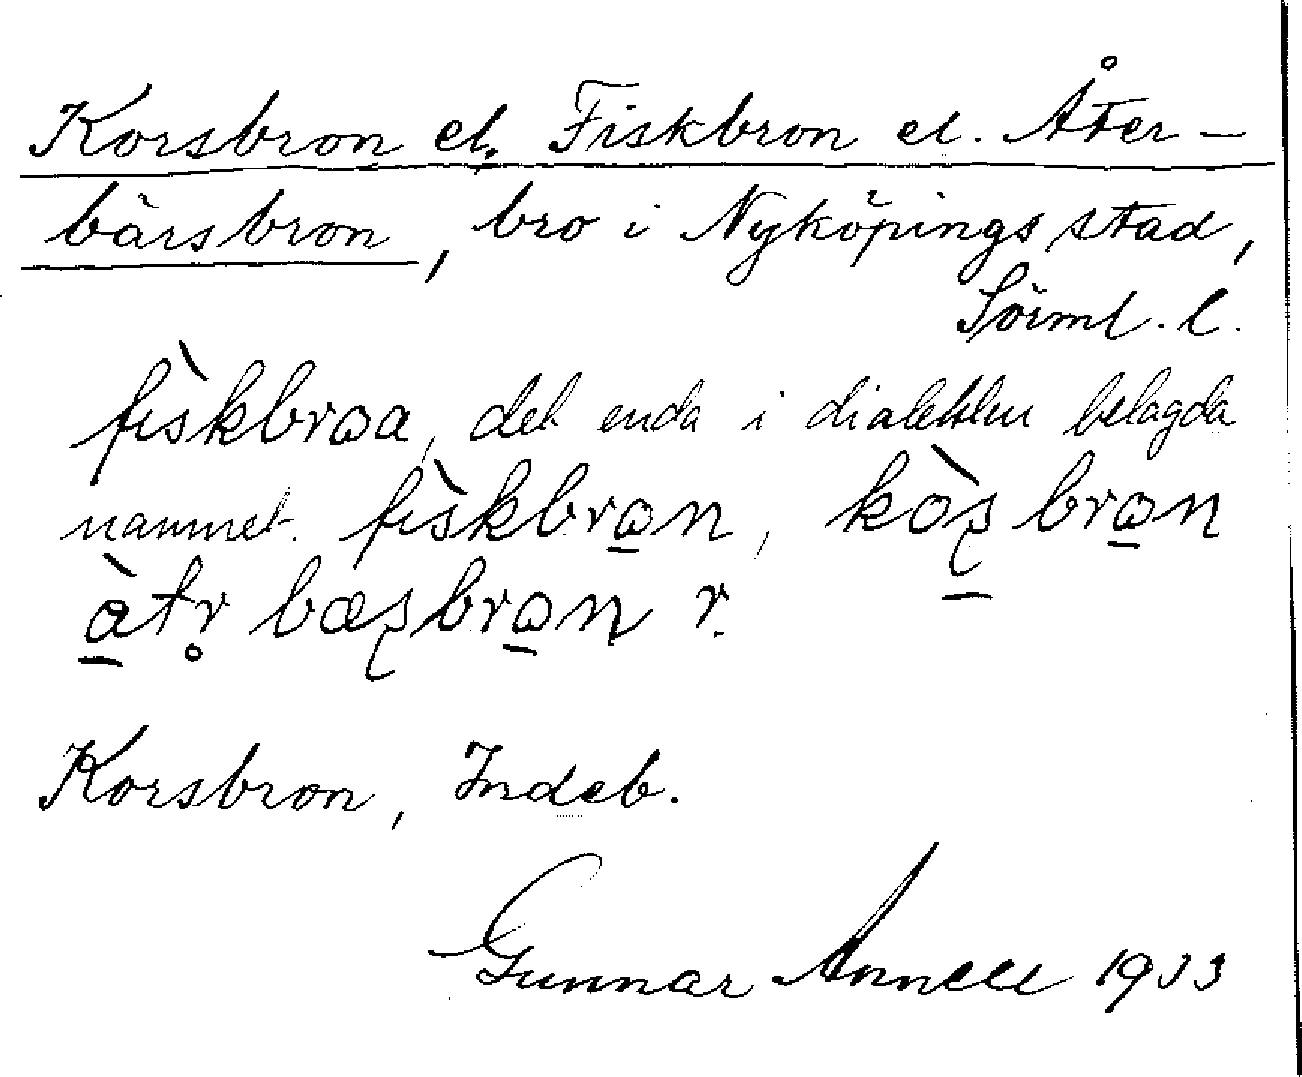 Korsbron el. Fiskbron el. Åter-
bärsbron, bro i Nyköpings stad,
Sörml. l.
fìskbrɷa, det enda i dialekten belagda
namnet. fìskbrɷ̲n, kòʂ̲brɷ̲n
ɷ̲̀tr̥bæʂbrɷ̲n r.
Korsbron, Indeb.
Gunnar Annell 1933